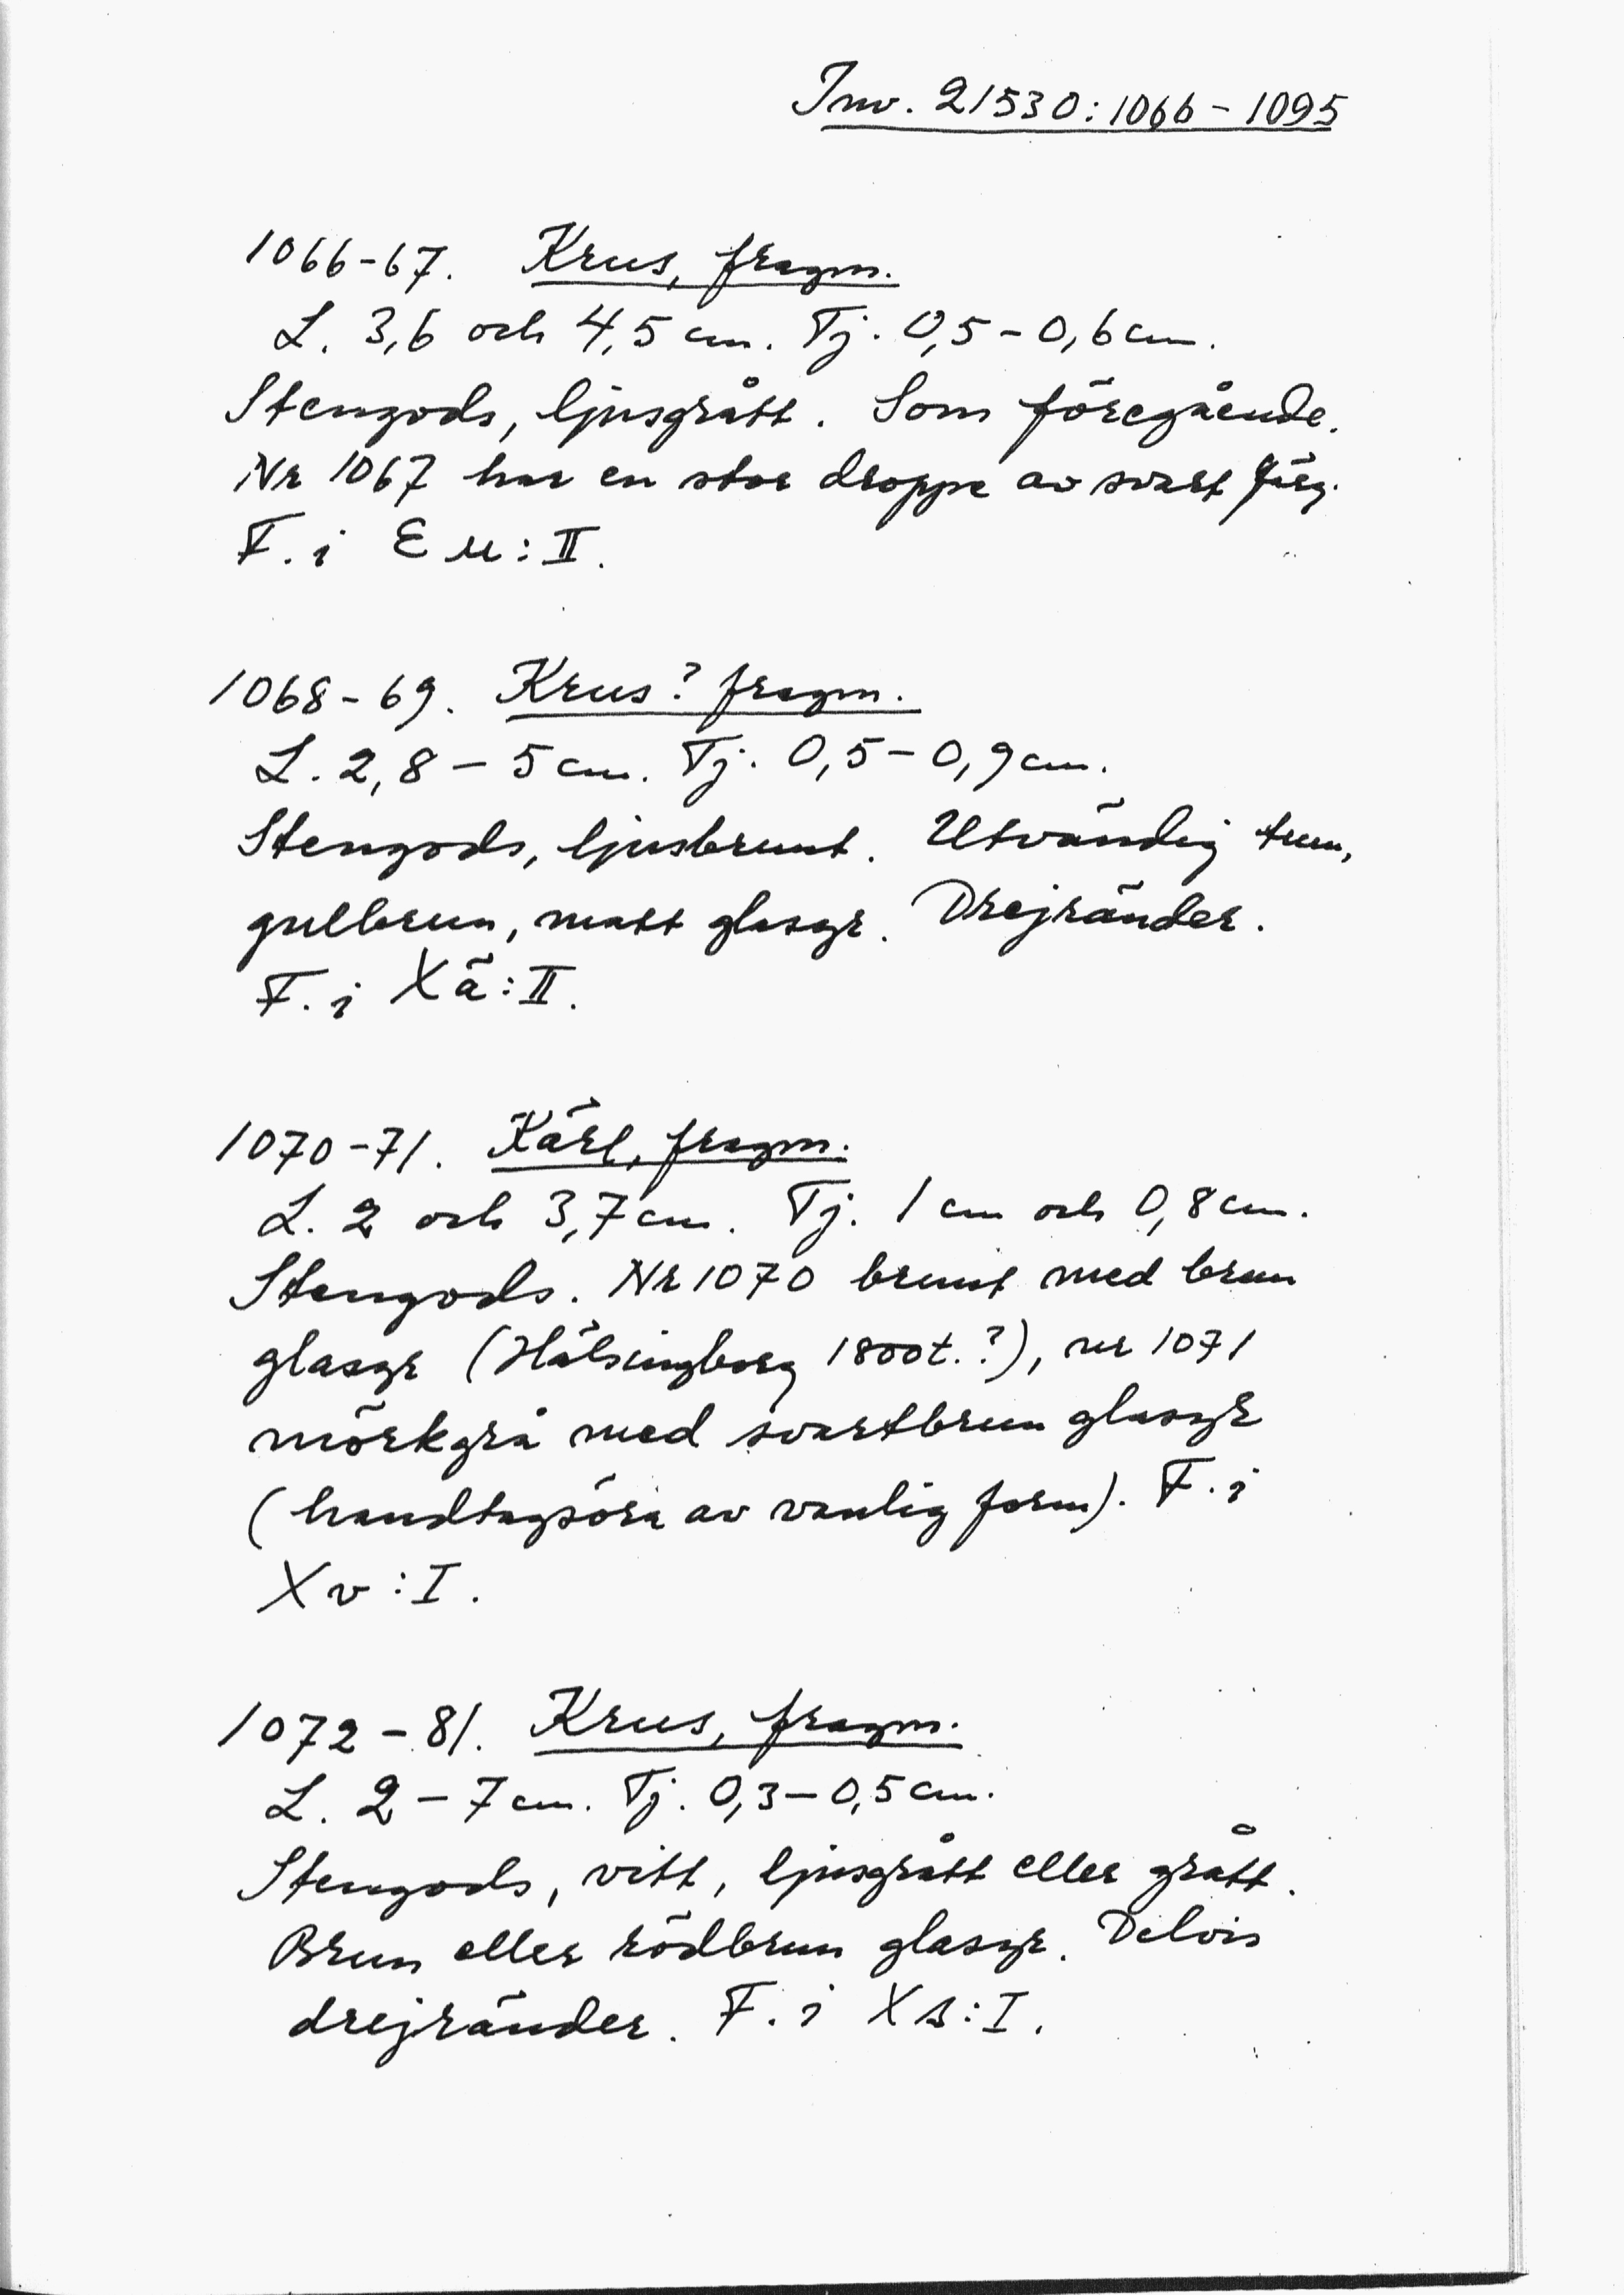 Inv. 21530:1066-1095
1066-67. Krus, fragm.
L. 3,6 och 4,5 cm. Tj. 0,5-0,6 cm.
Stengods, ljusgrått. Som föregående.
Nr 1067 har en stor droppe av svart färg.
F. i E u:II.
1068-69. Krus? fragm.
L. 2,8-5 cm. Tj. 0,5-0,9 cm.
Stengods, ljusbrunt. Utvändig tunn,
gulbrun, matt glasyr. Drejränder.
F. i Xä:II.
1070-71. Kärl, fragm.
L. 2 och 3,7 cm. Tj. 1 cm och 0,8 cm.
Stengods. Nr 1070 brunt med brun
glasyr (Hälsingborg 1800t.?), nr 1071
mörkgrå med svartbrun glasyr
(handtagsöra av vanlig form). F. i
Xv:I.
1072-81. Krus, fragm.
L. 2-7 cm. Tj. 0,3-0,5 cm.
Stengods, vitt, ljusgrått eller grått.
Brun eller rödbrun glasyr. Delvis
drejränder. F. i Xs:I.